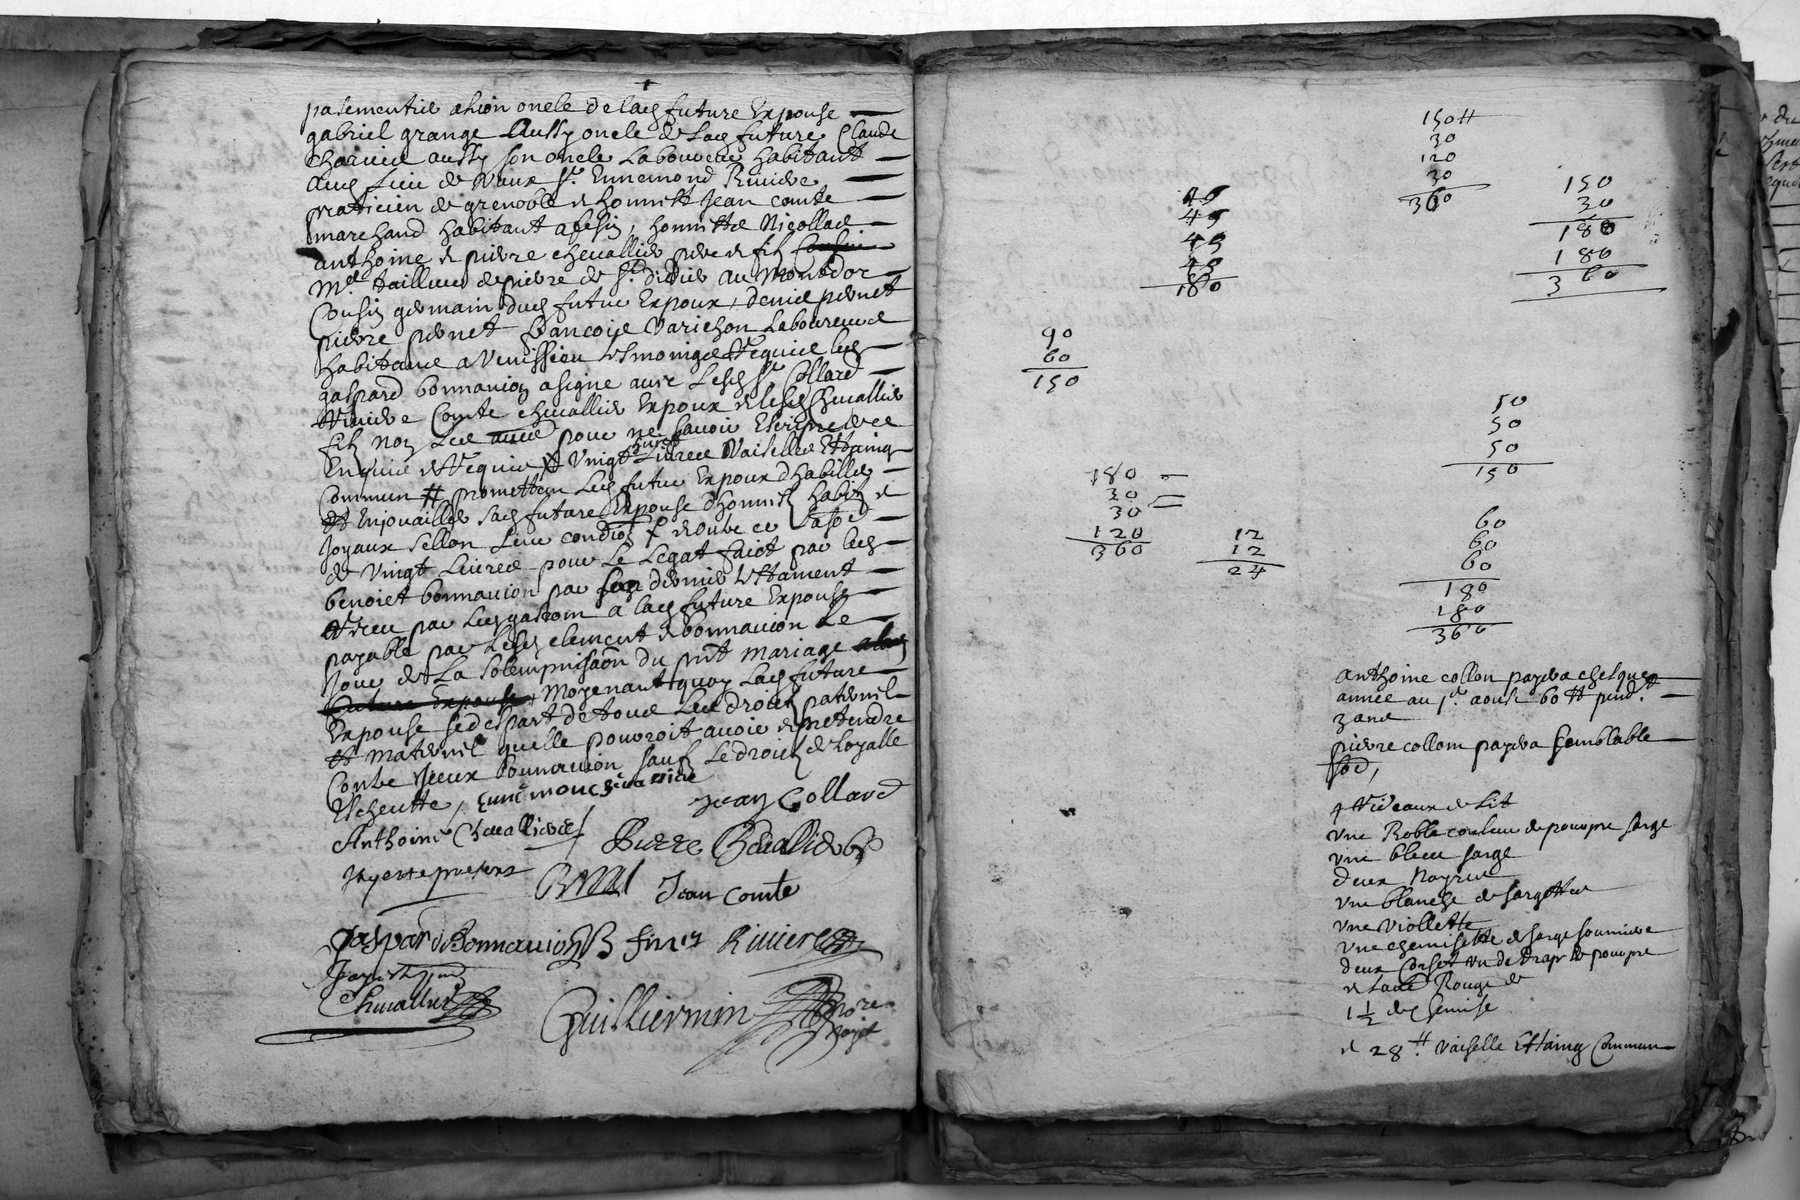 passementier a Lion oncle de lad future Expouse
gabriel grange Aussy oncle de Lad future Claude
aussy son oncle Laboureur habitant
aud Lieu de Vaux Sr. Ennemond Riviere
praticien de grenoble et honneste Jean comte
marchand habitant honneste Nicollas
anthoine et pierre chevallier pere et fils
Me tailleur de pierre de St. didier au Montdor
Cousin germain dud futur Expoux, denis pernet
pierre pernet francoise Varichon Laboureur
habitans a Venissieu tesmoings Requis led
gaspard bonnavion a signe avec Lesd Sr Collard
Riviere Comte chevallier Expoux et lesd Chevallier
fils non Les pour ne savoir Escripre de ce
Enquis et Requis # Vingt huict Livres Vaisselle Estaing
Commun # promettan Led futur Expoux d'habiller
et Enjouailler sad future Expouse d'honnestes habits et
Joyaux sellon Leur condion et outre ce La sode
de Vingt Livres pour Le Legat faict par led
benoict bonnavion par son dernier testament
Receu par a lad future Expouse
payable par Lesd clement et bonnavion Le
Jour de La Solempnisaon du pnt Mariage
future Expouse, Moyenant quoy Lad future
Expouse se despart de tous Les droits paternels
et Maternels quelle pouvoit avoir et pretendre
Contre Iceux bonnavion sauf Le droit de Loyalle
Escheutte,
Jean Collard
Anthoine Chevallier
Pierre Chevallier
Jay este present
Jean Comte
Gaspard Bonnavion
Riviere
Chevallier
Guilliermin
150 #
30
120
30
360
45
45
45
45
180
150
30
180
180
360
90
60
150
50
50
50
150
180
30
30
120
360
12
12
24
60
60
60
180
180
360
anthoine collon payera chesque
annee au pr. aoust 60 # pend.t
3 ans
pierre collom payera semblable
sode,
4 Rideaux de Lit
une Robbe couleur de pourpre sarge
une bleue sarge
deux Noyres
une blanche de sargette
une Viollette
une chemisette de sarge
deux Corset un de drap de pourpre
et Lautre Rouge et
1 1/2 de Chemise
et 28 # Vaiselle Estaing Commun